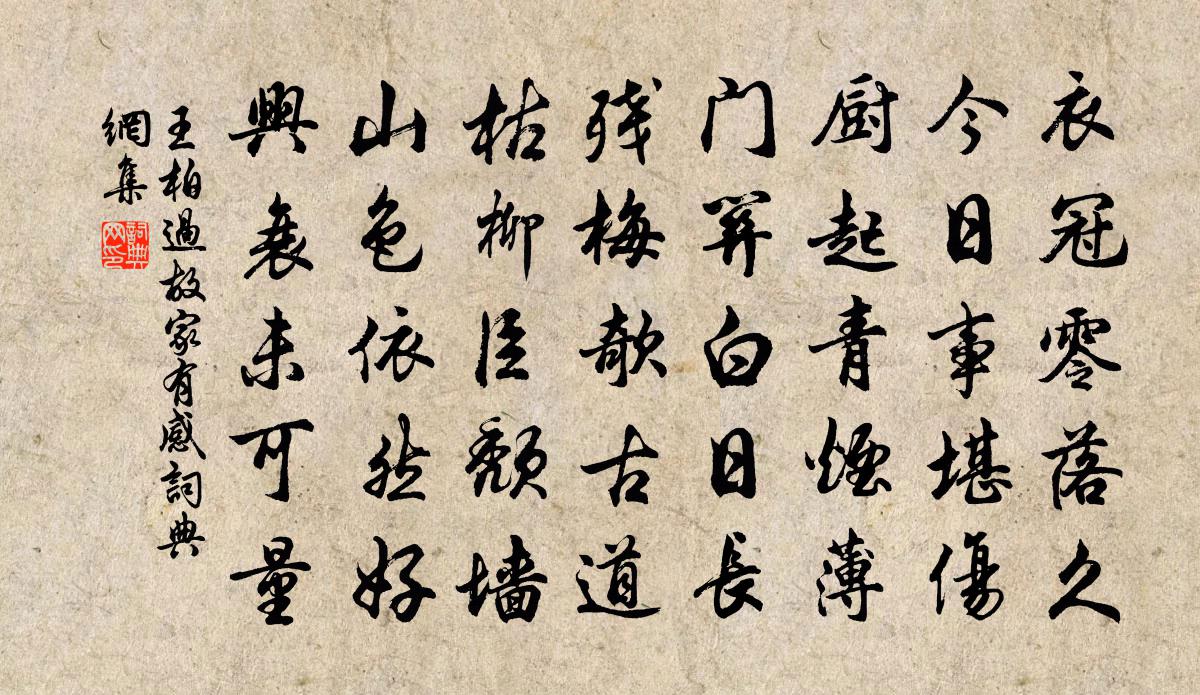 衣冠零落久
今日事堪傷
厨起青煙薄
门開白日長
残梅欹古道
枯柳臣頹墙
山色依然好
興衰未可量
王柏過故家有感詞典
網集
詞典
网印